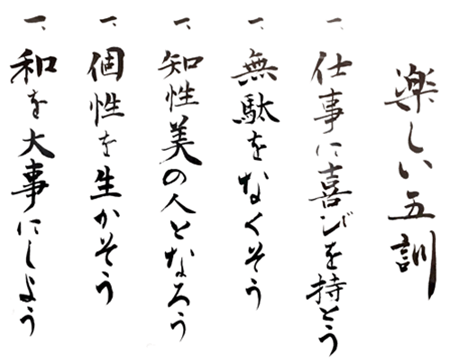 楽しい五訓
一、仕事に喜びを持とう
一、無駄をなくそう
一、知性美の人となろう
一、個性を生かそう
一、和を大事にしよう